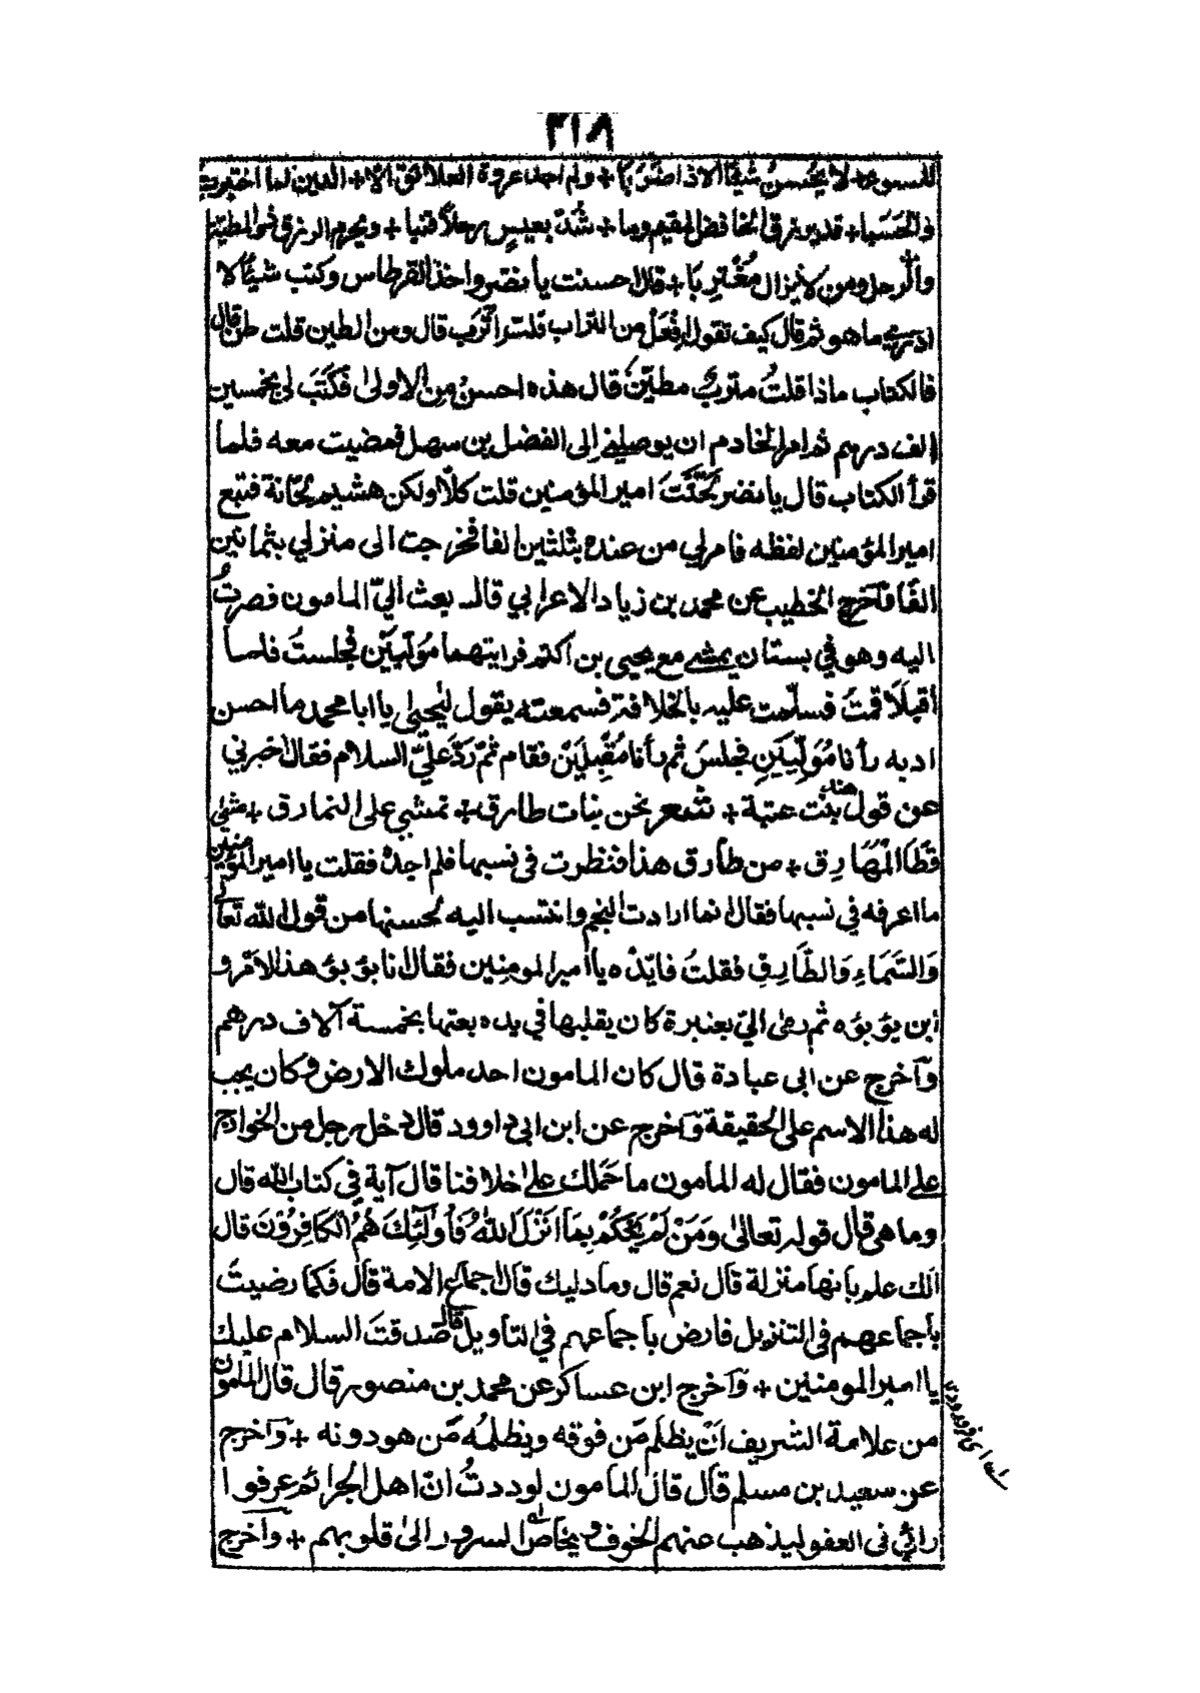 ٣١٨
السوء + لا يحسن شيئا الا اذا ضربا + ولم اجد عروة العلائق الا + الدين لما اختبرت
والحسبا + قد يرزق الخافض المقيم وما + شُدّ بعيسٍ رحلاً قتبا + ويحرم الرزق ذو المطية
والرحل ومن لا يزال مُغْتَرِبًا + قال احسنت يا نضر واخذ القرطاس وكتب شيئًا لا
ادريه ما هو ثم قال كيف تقول اِفْعَل من التراب قلت اَتْرِب قال ومن الطين قلت طن قال
فالكتاب ماذا قلتُ متربٌ مطينٌ قال هذه احسنُ مِن الاولىٰ فكَتَبَ لي بخمسين
الف درهم ثم امر الخادم ان يوصلني اِلى الفضل بن سهل فمضيت معه فلما
قرأ الكتاب قال يا نضر لَحَّنْتَ امير المؤمنين قلت كلاّ ولكن هشيم لحّانة فتبع
امير المؤمنين لفظه فامر لي من عنده بثلثين الفا فخرجت الى منزلي بثمانين
الفًا وَآخرج الخطيب عن محمد بن زياد الاعرابي قال بعث اليّ المامون فصرتُ
اليه وهو في بستان يمشي مع يحيى بن اكثم فرايتهما مُوَلّيَيْن فجلستُ فلما
اَقبلَا قمتُ فسلّمت عليه بالخلافة فسمعته يقول ليحيىٰ يا ابا محمد ما احسن
ادبه رأنا مُوَلّيَيْنِ فجلسَ ثم رأنا مُقْبِلَيْن فقام ثم رَدَّ عليّ السلام فقال اخبرني
عن قول هند بنت عتبة + شعر نحن بنات طارق + نمشي على النمارق + مشي
قَطَا المَهَارِق + من طارق هذا فنظرت في نسبها فلم اجده فقلت يا امير المؤمنين
ما اعرفه في نسبها فقال انما ارادت النجم وانتسب اليه لحسنها من قول الله تعالى
وَالسَّمَاءِ وَالطَّارِقِ فقلتُ فايّده يا امير المومنين فقال انا بؤبؤ هذا الامر و
ابن بؤبؤه ثم رمىٰ اليّ بعنبرة كان يقلبها في يده بعتها بخمسة آلاف درهم
وَآخرج عن ابي عبادة قال كان المامون احد ملوك الارض وكان يجب
له هذا الاسم على الحقيقة وَآخرج عن ابن ابي داوود قال دخل رجل من الخوارج
على المامون فقال له المامون ما حَمَلك على خلافنا قال آية في كتاب الله قال
وما هي قال قوله تعالىٰ وَمَنْ لَمْ يَحْكُمْ بِمَا اَنْزَلَ اللّٰهُ فَاُولٰٓئِكَ هُمُ الْكَافِرُوْنَ قال
الك علم بانها منزلة قال نعم قال وما دليلك قال اجماع الامة قال فكما رضيتَ
باجماعهم في التنزيل فارض باجماعهم في التاويل قال صدقتَ السلام عليك
يا امير المومنين + وَآخرج ابن عساكر عن محمد بن منصور قال قال المامون
من علامة الشريف اَنْ يظلم مَن فوقه ويظلمُه مَن هو دونه + وَآخرج
عن سعيد بن مسلم قال قال المامون لوددتُ انّ اهل الجرائم عرفوا
رائي في العفو ليذهب عنهم الخوف ويخلص السرور الىٰ قلوبهم + وَآخرج